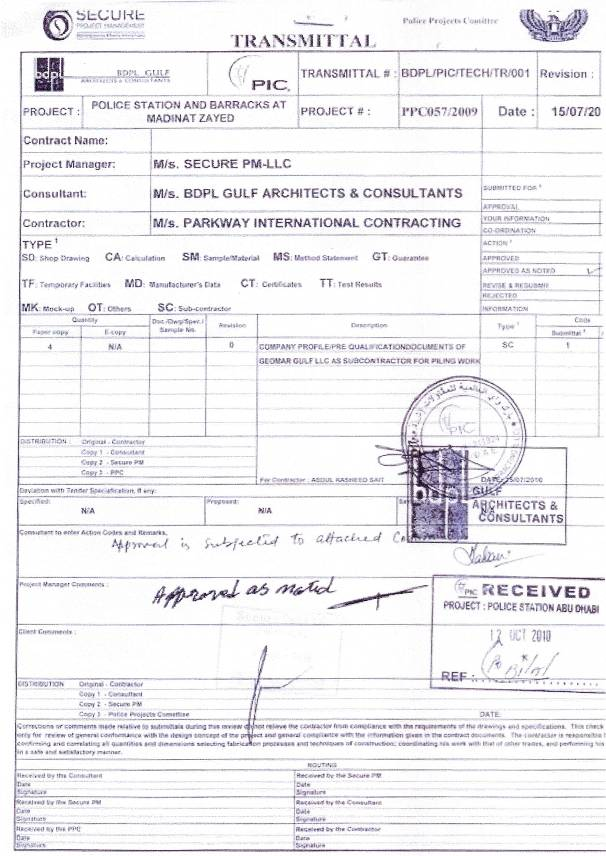 SECURE
PROJECT MANAGEMENT
Police Projects Comittee
TRANSMITTAL
bdpl
BDPL GULF
ARCHITECTS & CONSULTANTS
PIC
TRANSMITTAL # : BDPL/PIC/TECH/TR/001 Revision :
PROJECT : POLICE STATION AND BARRACKS AT
MADINAT ZAYED
PROJECT # : PPC057/2009 Date : 15/07/20
Contract Name:
Project Manager: M/s. SECURE PM-LLC
Consultant: M/s. BDPL GULF ARCHITECTS & CONSULTANTS
Contractor: M/s. PARKWAY INTERNATIONAL CONTRACTING
SUBMITTED FOR
APPROVAL
YOUR INFORMATION
CO-ORDINATION
ACTION
APPROVED
APPROVED AS NOTED
REVISE & RESUBMIT
REJECTED
INFORMATION
TYPE 1
SD: Shop Drawing CA: Calculation SM: Sample/Material MS: Method Statement GT: Guarantee
TF: Temporary Facilities MD: Manufacturer's Data CT: Certificates TT: Test Results
MK: Mock-up OT: Others SC: Sub-contractor
Quantity
Paper copy E-copy
Doc./Dwg/Spec./
Sample No.
Revision
Description
Type 1
Code
Submittal
4 N/A 0 COMPANY PROFILE/PRE QUALIFICATIONDOCUMENTS OF SC 1
GEOMAR GULF LLC AS SUBCONTRACTOR FOR PILING WORK
DISTRIBUTION : Original - Contractor
Copy 1 - Consultant
Copy 2 - Secure PM
Copy 3 - PPC
For Contractor : ABDUL RASHEED SAIT
PIC
U.A.E.
bdpl
GULF
ARCHITECTS &
CONSULTANTS
Deviation with Tender Specification, if any:
Specified: Proposed:
N/A N/A
N/A
Consultant to enter Action Codes and Remarks.
Approval is subjected to attached
Project Manager Comments :
Approved as noted
PIC RECEIVED
PROJECT : POLICE STATION ABU DHABI
12 OCT 2010
REF :
Client Comments :
DISTRIBUTION Original - Contractor
Copy 1 - Consultant
Copy 2 - Secure PM
Copy 3 - Police Projects Comittee
DATE:
Corrections or comments made relative to submittals during this review do not relieve the contractor from compliance with the requirements of the drawings and specifications. This check
only for review of general conformance with the design concept of the project and general compliance with the information given in the contract documents. The contractor is responsible
confirming and correlating all quantities and dimensions selecting fabrication processes and techniques of construction; coordinating his work with that of other trades, and performing his
in a safe and satisfactory manner.
ROUTING
Received by the Consultant Received by the Secure PM
Date Date
Signature Signature
Received by the Secure PM Received by the Consultant
Date Date
Signature Signature
Received by the PPC Received by the Contractor
Date Date
Signature Signature